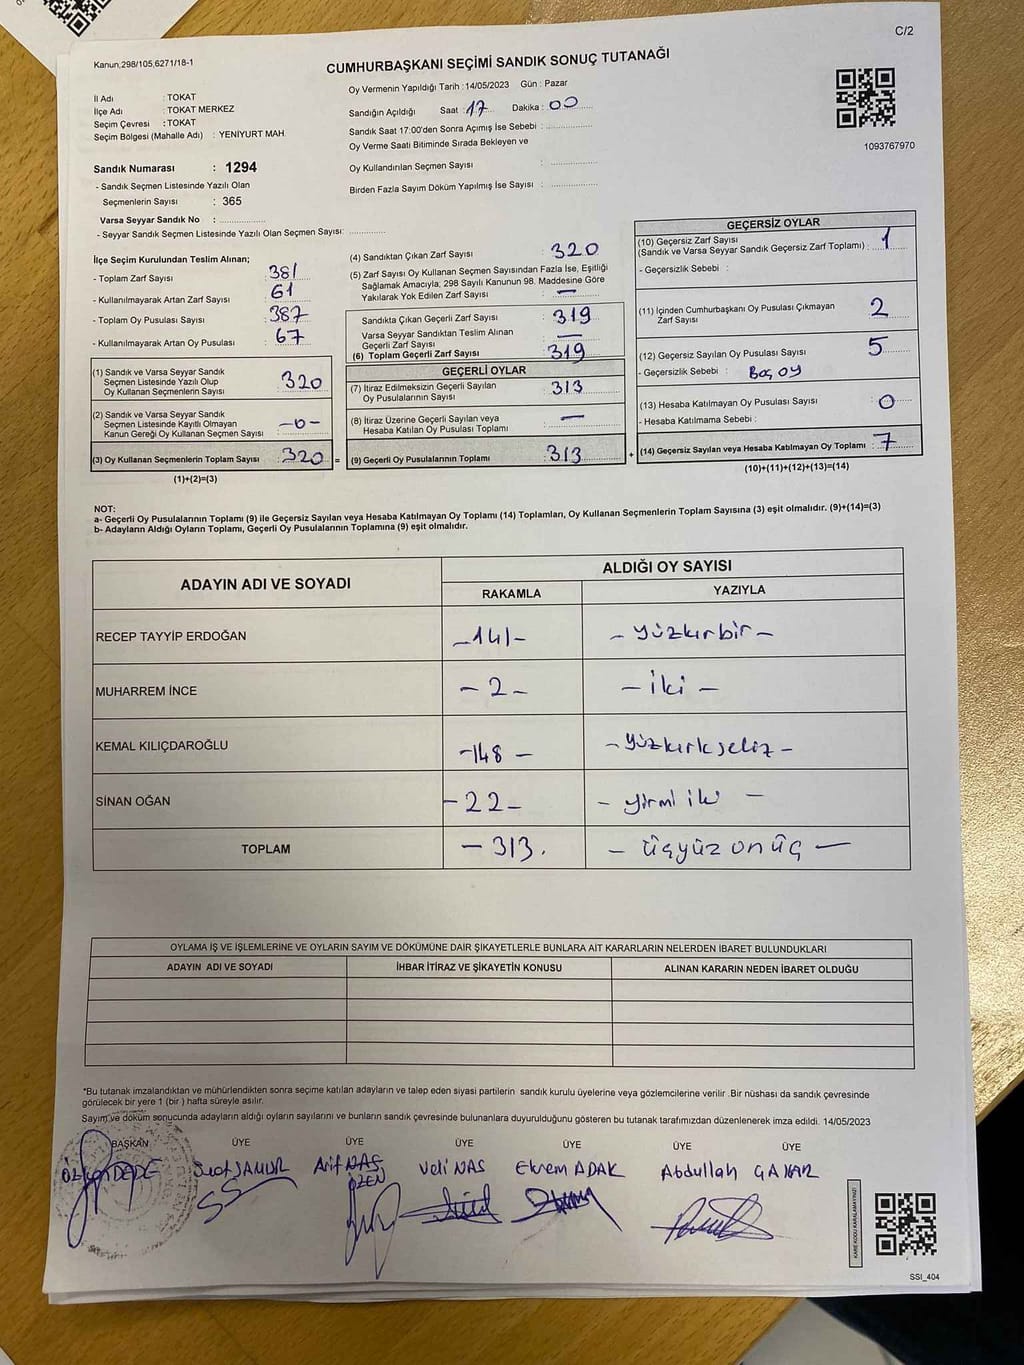 C/2
Kanun,298/105,6271/18-1
CUMHURBAŞKANI SEÇİMİ SANDIK SONUÇ TUTANAĞI
Oy Vermenin Yapıldığı Tarih : 14/05/2023 Gün : Pazar
İl Adı : TOKAT
İlçe Adı : TOKAT MERKEZ
Seçim Çevresi : TOKAT
Seçim Bölgesi (Mahalle Adı) : YENİYURT MAH.
Sandığın Açıldığı Saat : 17 Dakika : 00
Sandık Saat 17.00'den Sonra Açımış İse Sebebi :
Oy Verme Saati Bitiminde Sırada Bekleyen ve
Oy Kullandırılan Seçmen Sayısı :
Birden Fazla Sayım Döküm Yapılmış İse Sayısı :
1093767970
Sandık Numarası : 1294
- Sandık Seçmen Listesinde Yazılı Olan
Seçmenlerin Sayısı : 365
Varsa Seyyar Sandık No :
- Seyyar Sandık Seçmen Listesinde Yazılı Olan Seçmen Sayısı:
İlçe Seçim Kurulundan Teslim Alınan;
- Toplam Zarf Sayısı : 381
- Kullanılmayarak Artan Zarf Sayısı : 61
- Toplam Oy Pusulası Sayısı : 387
- Kullanılmayarak Artan Oy Pusulası : 67
(1) Sandık ve Varsa Seyyar Sandık
Seçmen Listesinde Yazılı Olup
Oy Kullanan Seçmenlerin Sayısı : 320
(2) Sandık ve Varsa Seyyar Sandık
Seçmen Listesinde Kayıtlı Olmayan
Kanun Gereği Oy Kullanan Seçmen Sayısı : -0-
(3) Oy Kullanan Seçmenlerin Toplam Sayısı : 320 =
(1)+(2)=(3)
(4) Sandıktan Çıkan Zarf Sayısı : 320
(5) Zarf Sayısı Oy Kullanan Seçmen Sayısından Fazla İse, Eşitliği
Sağlamak Amacıyla, 298 Sayılı Kanunun 98. Maddesine Göre
Yakılarak Yok Edilen Zarf Sayısı : —
Sandıkta Çıkan Geçerli Zarf Sayısı : 319
Varsa Seyyar Sandıktan Teslim Alınan
Geçerli Zarf Sayısı : —
(6) Toplam Geçerli Zarf Sayısı : 319
GEÇERLİ OYLAR
(7) İtiraz Edilmeksizin Geçerli Sayılan
Oy Pusulalarının Sayısı : 313
(8) İtiraz Üzerine Geçerli Sayılan veya
Hesaba Katılan Oy Pusulası Toplamı : —
(9) Geçerli Oy Pusulalarının Toplamı : 313 +
GEÇERSİZ OYLAR
(10) Geçersiz Zarf Sayısı
(Sandık ve Varsa Seyyar Sandık Geçersiz Zarf Toplamı) : 1
- Geçersizlik Sebebi :
(11) İçinden Cumhurbaşkanı Oy Pusulası Çıkmayan
Zarf Sayısı : 2
(12) Geçersiz Sayılan Oy Pusulası Sayısı : 5
- Geçersizlik Sebebi : Boş oy
(13) Hesaba Katılmayan Oy Pusulası Sayısı : 0
- Hesaba Katılmama Sebebi :
(14) Geçersiz Sayılan veya Hesaba Katılmayan Oy Toplamı : 7
(10)+(11)+(12)+(13)=(14)
NOT:
a- Geçerli Oy Pusulalarının Toplamı (9) ile Geçersiz Sayılan veya Hesaba Katılmayan Oy Toplamı (14) Toplamları, Oy Kullanan Seçmenlerin Toplam Sayısına (3) eşit olmalıdır. (9)+(14)=(3)
b- Adayların Aldığı Oyların Toplamı, Geçerli Oy Pusulalarının Toplamına (9) eşit olmalıdır.
ADAYIN ADI VE SOYADI ALDIĞI OY SAYISI
RAKAMLA YAZIYLA
RECEP TAYYİP ERDOĞAN -141- - yüzkırbir -
MUHARREM İNCE - 2 - - iki -
KEMAL KILIÇDAROĞLU -148 - - yüzkırksekiz -
SİNAN OĞAN - 22 - - yirmi iki -
TOPLAM - 313. - üçyüz onüç -
OYLAMA İŞ VE İŞLEMLERİNE VE OYLARIN SAYIM VE DÖKÜMÜNE DAİR ŞİKAYETLERLE BUNLARA AİT KARARLARIN NELERDEN İBARET BULUNDUKLARI
ADAYIN ADI VE SOYADI İHBAR İTİRAZ VE ŞİKAYETİN KONUSU ALINAN KARARIN NEDEN İBARET OLDUĞU
*Bu tutanak imzalandıktan ve mühürlendikten sonra seçime katılan adayların ve talep eden siyasi partilerin sandık kurulu üyelerine veya gözlemcilerine verilir .Bir nüshası da sandık çevresinde
görülecek bir yere 1 (bir ) hafta süreyle asılır.
Sayım ve döküm sonucunda adayların aldığı oyların sayılarını ve bunların sandık çevresinde bulunanlara duyurulduğunu gösteren bu tutanak tarafımızdan düzenlenerek imza edildi. 14/05/2023
BAŞKAN ÜYE ÜYE ÜYE ÜYE ÜYE ÜYE
DEDE Suat Arif NAS Veli NAS Ekrem ADAK Abdullah
ÖZEN
KARE KODU KARALAMAYINIZ!
SSI_404